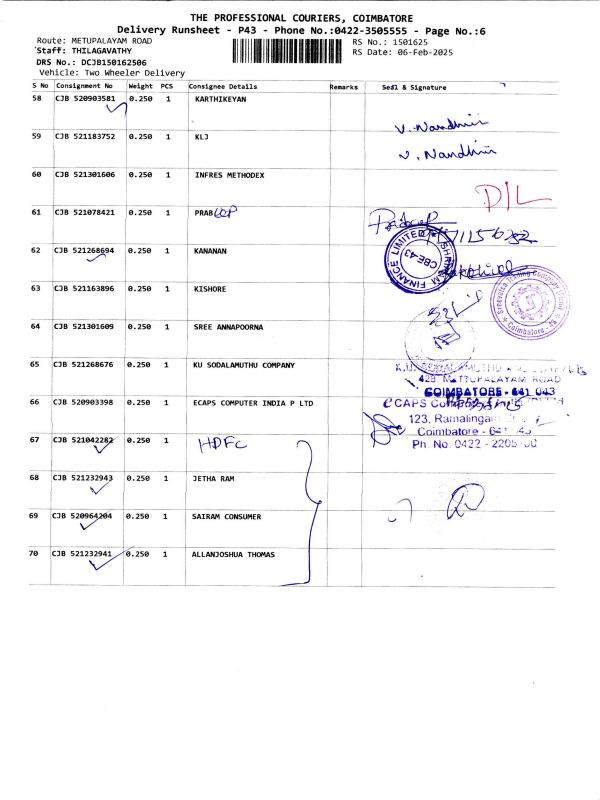 THE PROFESSIONAL COURIERS, COIMBATORE
Delivery Runsheet - P43 - Phone No.:0422-3505555 - Page No.:6
Route: METUPALAYAM ROAD
RS No.: 1501625
Staff: THILAGAVATHY
RS Date: 06-Feb-2025
DRS No.: DCJB150162506
Vehicle: Two Wheeler Delivery
S No Consignment No Weight PCS Consignee Details Remarks Seal & Signature
58 CJB 520903581 0.250 1 KARTHIKEYAN
V. Nandhini
59 CJB 521183752 0.250 1 KLJ
V. Nandhini
60 CJB 521301606 0.250 1 INFRES METHODEX
D/L
61 CJB 521078421 0.250 1 PRAB
62 CJB 521268694 0.250 1 KANANAN
FINANCE LIMITED
CBE-43
63 CJB 521163896 0.250 1 KISHORE
Coimbatore
64 CJB 521301609 0.250 1 SREE ANNAPOORNA
65 CJB 521268676 0.250 1 KU SODALAMUTHU COMPANY
428 METTUPALAYAM ROAD
COIMBATORE - 641 043
66 CJB 520903398 0.250 1 ECAPS COMPUTER INDIA P LTD
123, Ramalingam
Coimbatore - 641 043
Ph. No. 0422 - 2205
67 CJB 521042282 0.250 1 HDFC
68 CJB 521232943 0.250 1 JETHA RAM
69 CJB 520964204 0.250 1 SAIRAM CONSUMER
70 CJB 521232941 0.250 1 ALLANJOSHUA THOMAS